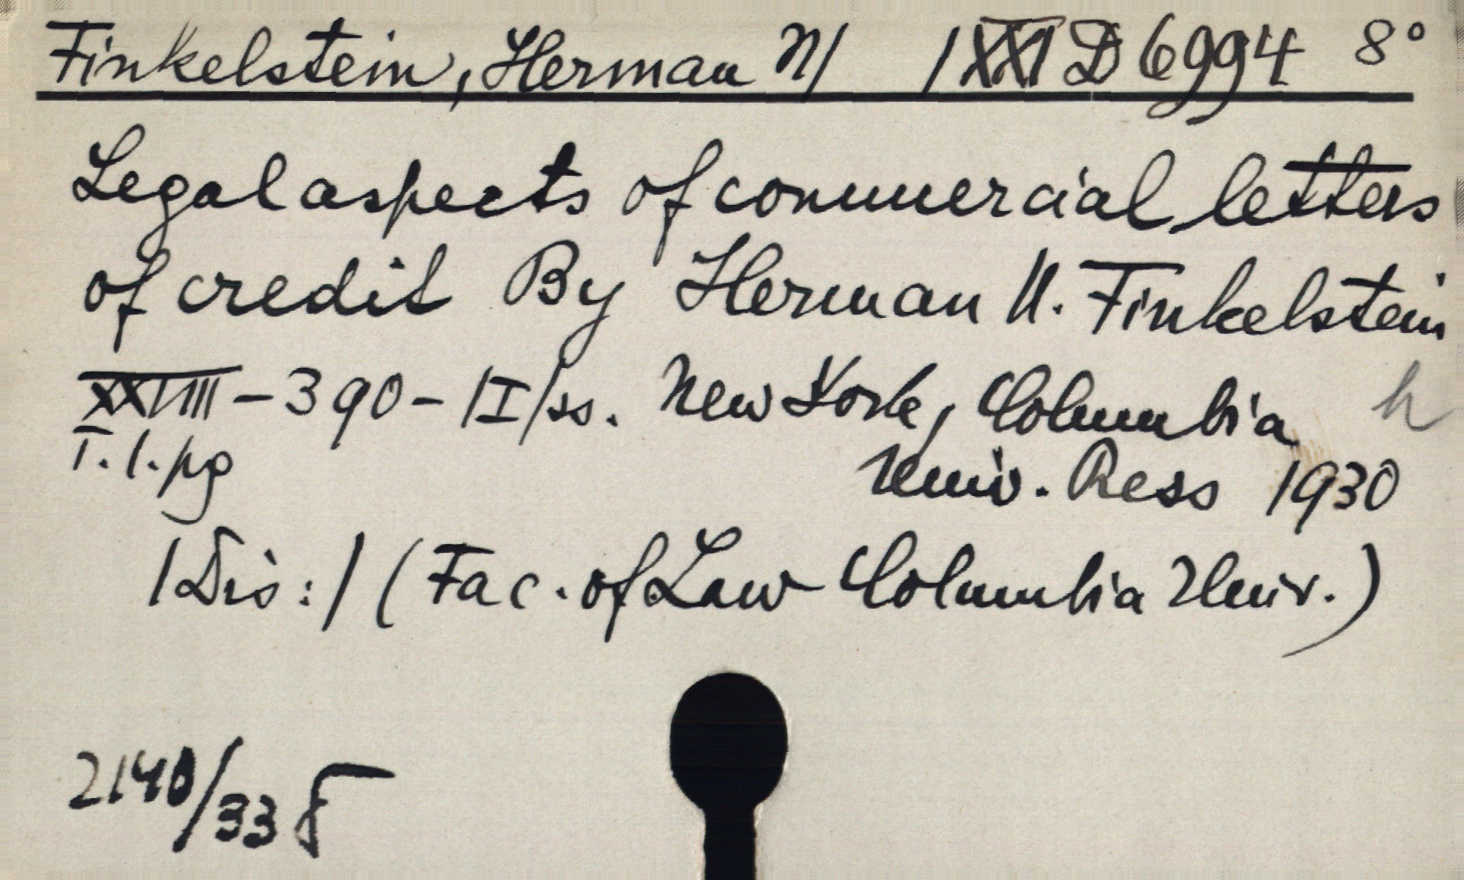 Finkelstein, Herman N/ /XXI D 6994 8°
Legal aspects of commercial letters
of credit By Herman N. Finkelstein
XXVIII - 390 - /I/ss. New York, Columbia h
T. l. pg Univ. Press 1930
/Dis:/ (Fac. of Law Columbia Univ.)
2140/33